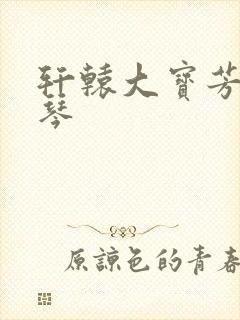 轩辕大宝芳
琴
原諒色的青春